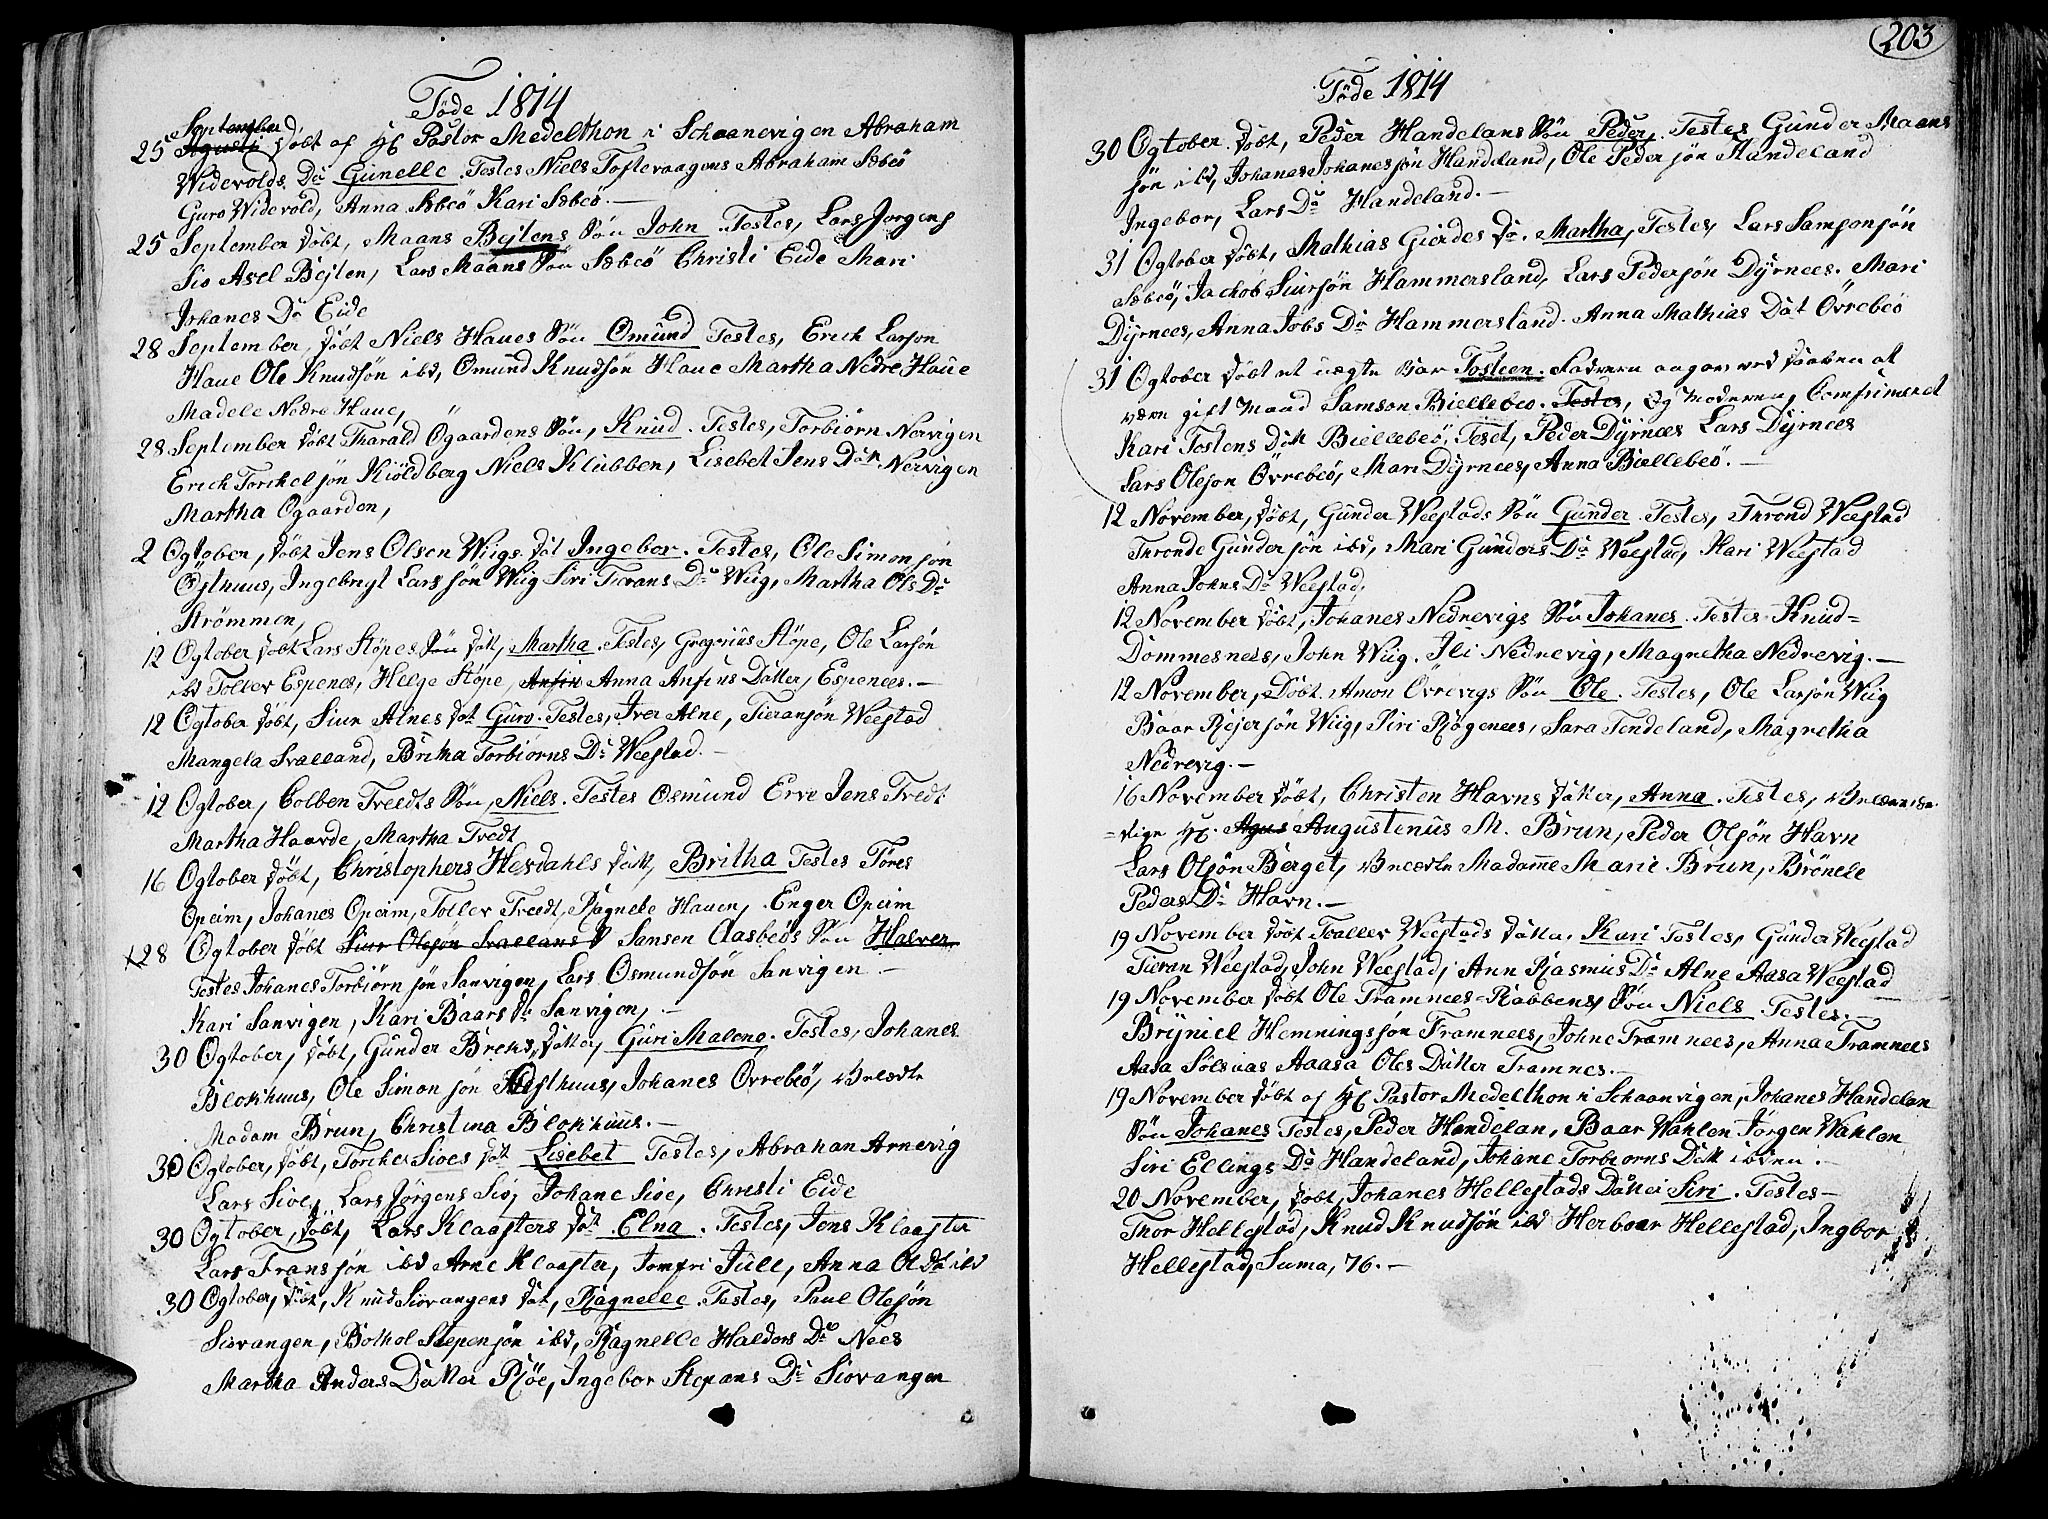 Föde 1814
September
25 Agusti döbt af H Pastor Medelthon i Schaanevigen Abraham
Widevolds Da Gunelle. Testes Niels Toftevaagens Abraham Sæbeö
Guro Widevold, Anna Sæbeö Kari Sæbeö.
25 September döbt, Maans Bejtens Sön John. Testes, Lars Jorgens
Sio Axel Bejten, Lars Maans Sön Sæbeö Christi Eide Mari
Johanes Da Eide
28 September, döbt Niels Haues Sön Omund Testes, Erich Larson
Haue Ole Knudsön ibd, Omund Knudsön Haue Martha Nedre Haue
Madele Nedre Haue,
28 September döbt Tharald Ögaardens Sön, Knud. Testes, Torbiörn Nervigen
Erich Torchelsjön Kiöldberg Niels Klubben, Lisebet Jens Dön Nervigen
Martha Ogaarden,
2 Ogtober, döbt Jens Olsen Wiigs dat Ingebor. Testes, Ole Simonsjön
Östhuus, Ingebrygt Larssjön Wiig Siri Tierans Da Wiig, Martha Ols Da
Strömmen,
12 Ogtober döbt Lars Stöpes Sön datt, Martha. Testes, Gregorius Stöpe, Ole Larsön
ibd Tollev Espenes, Helge Stöpe, Ansin Anna Ansins Datter, Espenees.
12 Ogtober döbt, Siur Alnes dat Guro. Testes, Iver Alne, Tieransjön Weestad
Mangela Svalland, Britha Torbiörns Da Weestad.
12 Ogtober, Colben Treedts Sön, Niels. Testes Osmund Erve Jens Tredt
Martha Haarde, Martha Tredt
16 Ogtober döbt, Christophers Hesdahls datt, Britha Testes Töres
Opeim, Johanes Opeim, Tollev Treedt, Ragnele Hauen, Enger Opeim
28 Ogtober döbt Siur Olesön Svallans Sansen Aasbeös Sön Halver
Testes Johanes Torbiörnsjön Sanvigen, Lars Osmundsjön Sanvigen
Kari Sanvigen, Kari Baars Da Sanvigen,
30 Ogtober, döbt, Gunder Breks datter, Guri Malene. Testes, Johanes
Blokhuus, Ole Simonsjön Östhuus, Johanes Ovrebeö, Velædle
Madam Brun, Christina Blokhuus.
30 Ogtober, döbt, Torcher Sioes dat Lisebet Testes, Abrahan Arnevig
Lars Sioe, Lars Jörgens Sio, Johane Sioe, Christi Eide
30 Ogtober, döbt, Lars Klaasters dat Elna. Testes, Jens Klaaster
Lars Franssjön ibd Arne Klaaster, Jomfri Juel, Anna Ol Da ibd
30 Ogtober, döbt, Knud Siovangens dat, Ragnelle. Testes, Paul Olesjön
Siovangen, Bothol Stepensjön ibd, Ragnelle Haldors Da Nees
Martha Anders Datter Röe, Ingebor Stepans Da Siovangen
203
Föde 1814
30 Ogtober. döbt, Peder Handelans Sön Peder. Testes Gunder Maans
sjön ibd, Johanes Johanessjön Handeland, Ole Pedersjön Handeland
Ingebor, Lars Da Handeland.
31 Ogtober döbt, Mathias Gierdes Da. Martha, Testes, Lars Samsonsjön
Sæbeö, Jachob Siursjön Hammersland, Lars Pedersjön Dyrnees. Mari
Dyrnees, Anna Jobs Da Hammersland. Anna Mathias Dat Övrebeö
31 Ogtober döbt et uægte Bar Tosteen. Faderen angav ved daaben at
være gift Mand Samson Biellebeo. Testes, og Moderen, Comfirmeret
Kari Tostens Datt Biellebeö, Teset, Peder Dyrnees Lars Dyrnees
Lars Olesjon Övrebeö, Mari Dyrnees, Anna Biellebeö.
12 November, döbt, Gunder Weestads Sön Gunder. Testes, Trond Weestad
Tronde Gundersjön ibd, Mari Gunders Da Weestad, Kari Weestad
Anna Johns Da Weestad,
12 November döbt, Johanes Nedrevigs Sön Johanes. Testes. Knud
Dommesnees, John Wiig. Ili Nedrevig, Magretha Nedrevig.
12 November, Döbt. Amon Övrevigs Sön Ole. Testes, Ole Larsjön Wiig
Baar Rejersjön Wiig, Siri Rögenees, Sara Tendeland, Magretha
Nedrevig.
16 November döbt, Christen Havns datter, Anna. Testes, Velærværdige
H. Agus Augustenus M. Brun, Peder Olsjön Havn
Lars Olsjön Berget, Velædle Madamme Marie Brun, Brönele
Peders Da Havn.
19 November döbt Tvallev Weestads datter, Kari Testes, Gunder Weestad
Tieran Weestad, John Weestad, Ann Rasmus Da Alne Aasa Weestad
19 November döbt Ole Framnees-Rabbens, Sön Niels Testes.
Bryniel Hemningsjön Framnees, Johne Framnees, Anna Framnees
Aasa Sölsvas Aaasa Oles Datter Framnes.
19 November döbt af H Pastor Medelthon i Schaanvigen, Johanes Handelan
Sön Johanes Testes, Peder Handelan, Baar Wahlen Jörgen Wahlen
Siri Ellings Da Handeland, Johane Torbiorns Datt ibden.
20 November, döbt, Johanes Hellestads Datter Siri. Testes
Thor Hellestad, Knud Knudsjön ibd Herboar Hellestad, Ingbor
Hellestad, Suma, 76.